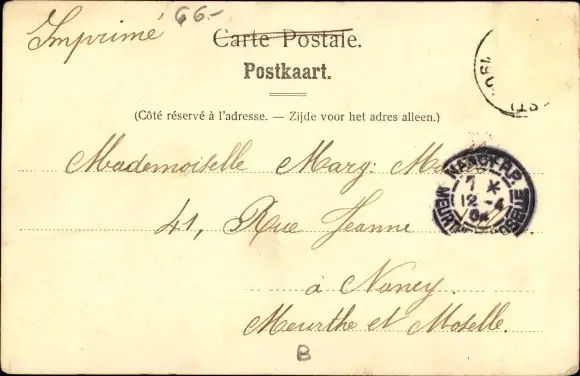 Imprimé 66.-
Carte Postale.
Postkaart.
(Côté réservé à l'adresse. — Zijde voor het adres alleen.)
Mademoiselle Mary:
41, Rue Jeanne
à Nancy.
Meurthe et Moselle.
B
NANCY R.P.
7 *
12 -4
04
MEURTHE